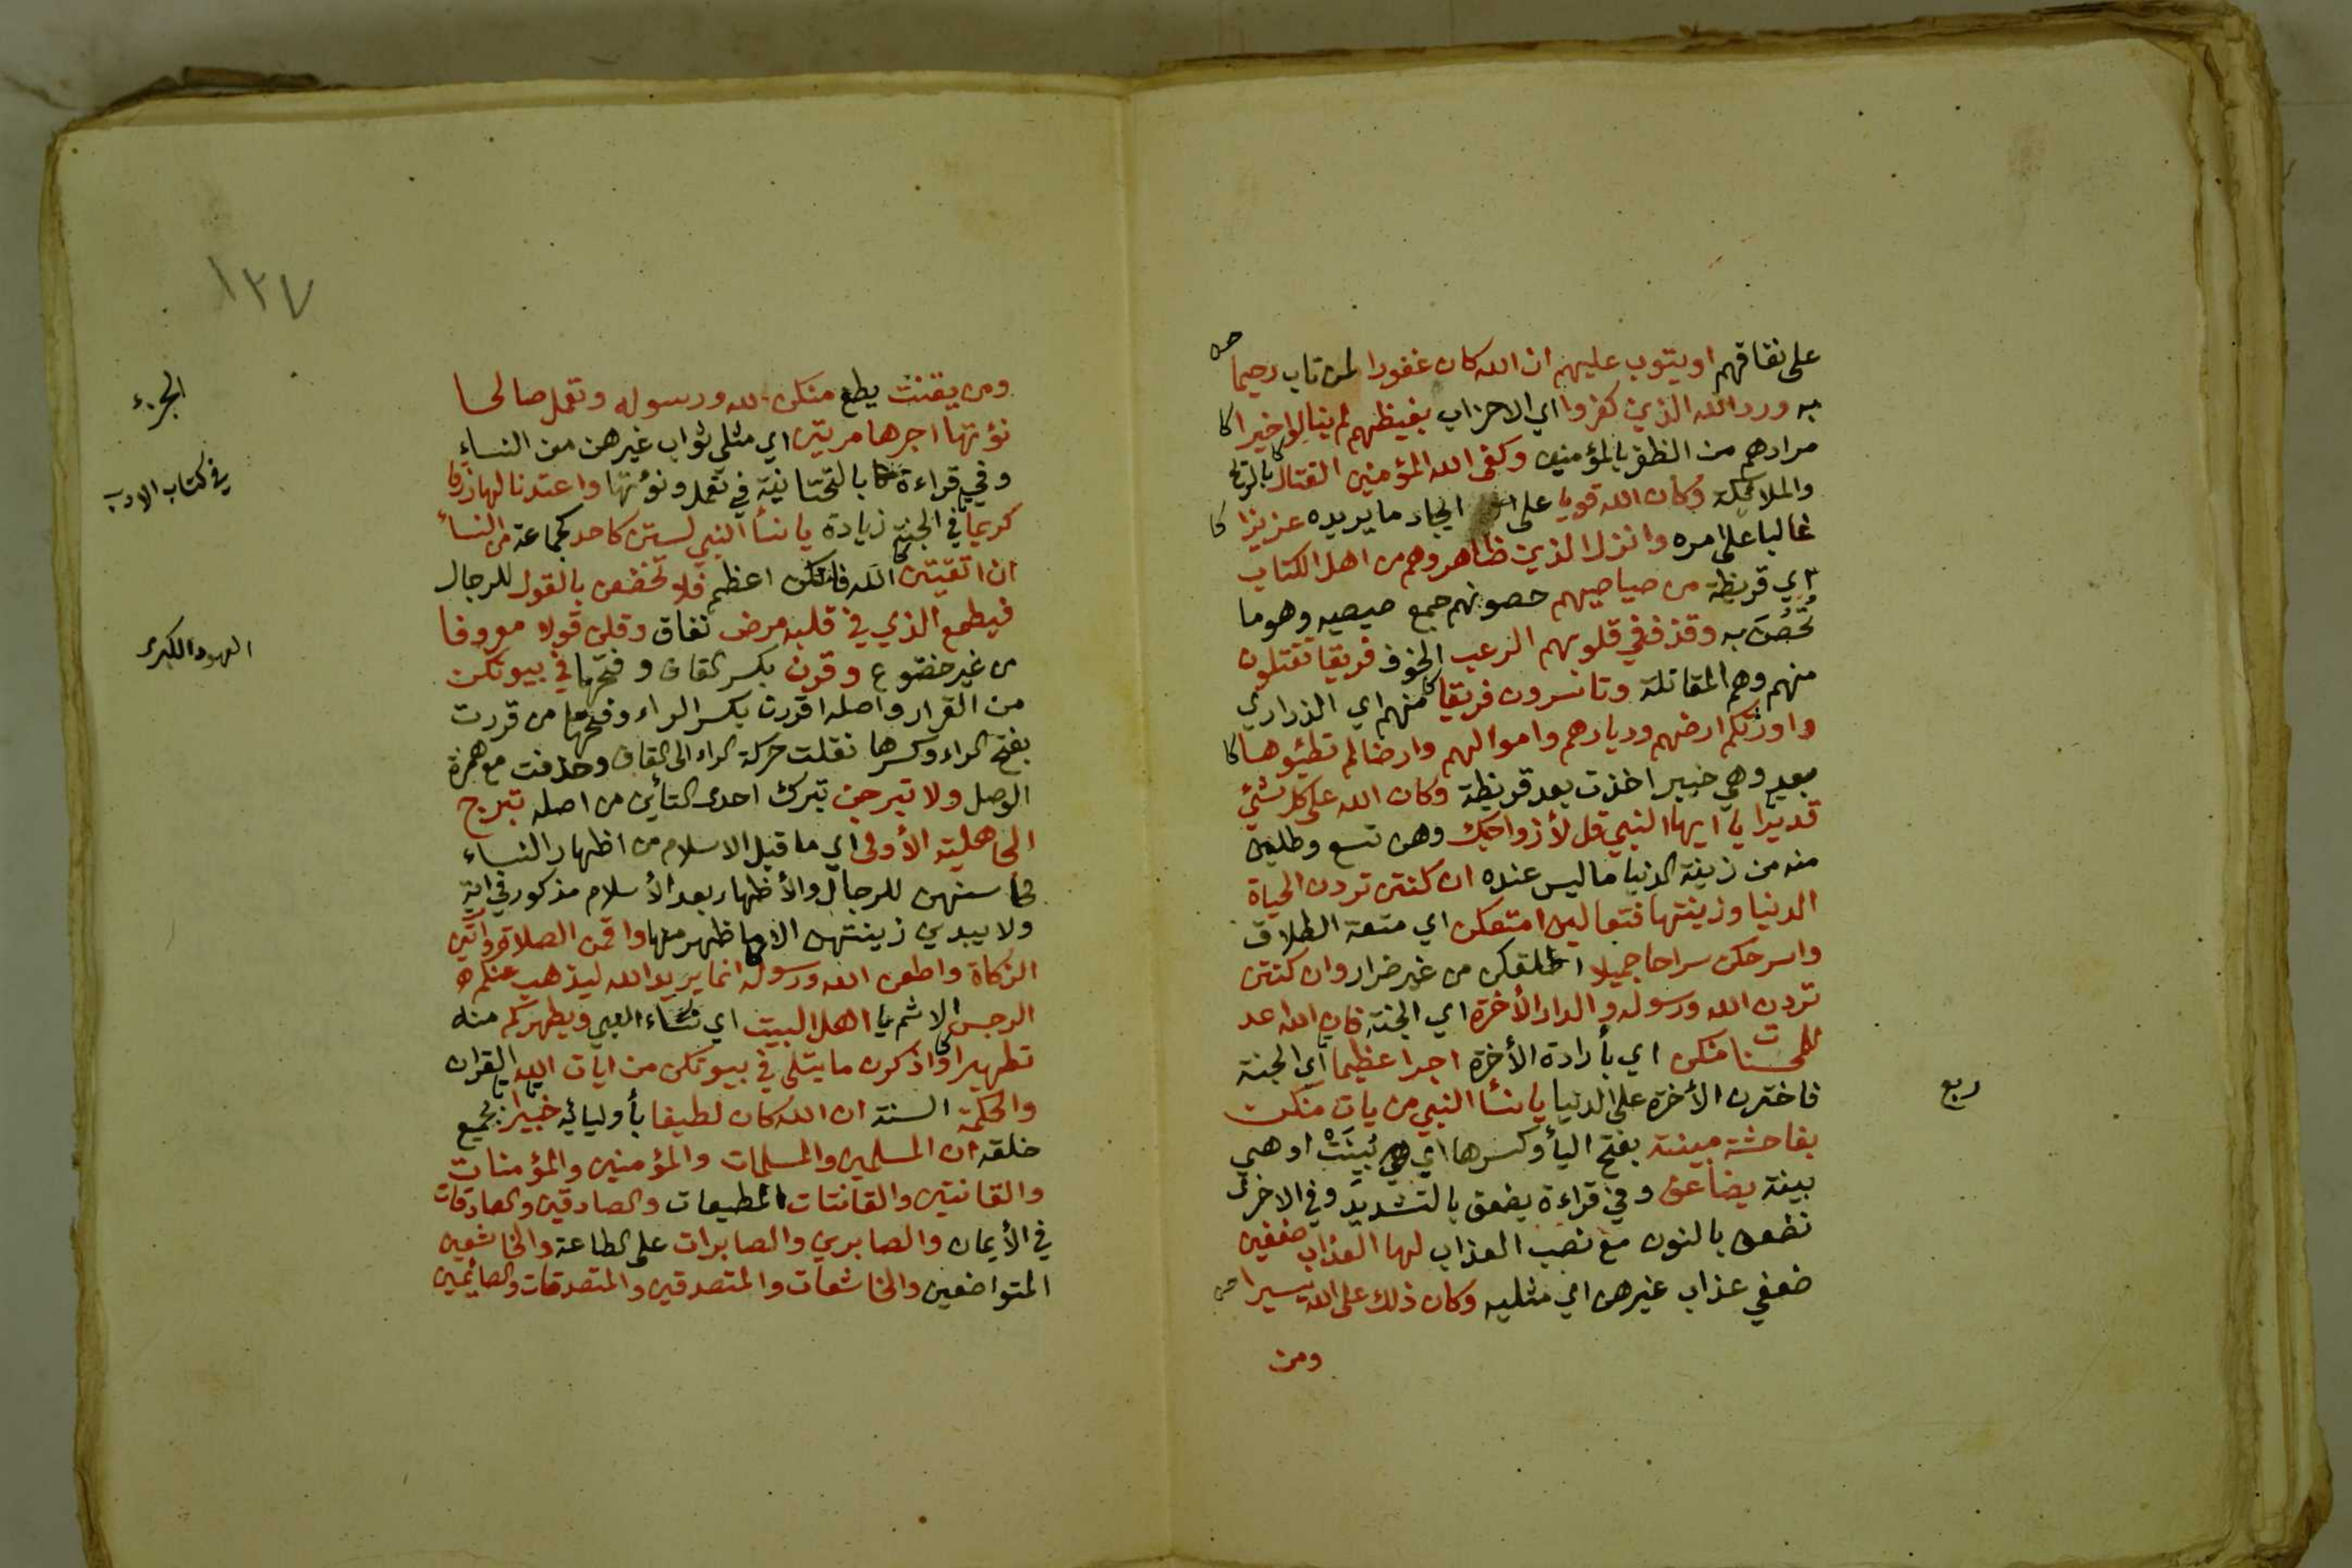 على نفاقهم او يتوب عليهم ان الله كان غفورا لمن تاب رحيما
به ورد الله الذين كفروا اي الاحزاب بغيظهم لم ينالوا خيرا كا
مرادهم من الظفر بالمؤمنين وكفى الله المؤمنين القتال بالريح
والملائكة وكان الله قويا على ايجاد ما يريده عزيزا كا
غالبا على امره وانزل الذين ظاهروهم من اهل الكتاب
اي قريظة من صياصيهم حصونهم جمع صيصيه وهو ما
تُحُصِّنَ به وقذف في قلوبهم الرعب الخوف فريقا تقتلون
منهم وهم المقاتلة وتاسرون فريقا منهم اي الذراري
واورثكم ارضهم وديارهم واموالهم وارضا لم تطئوها كا
بعد وهي خيبر اخذت بعد قريظة وكان الله على كل شئ
قديرا يا ايها النبي قل لأزواجك وهن تسع وطلبن
منه من زينة الدنيا ما ليس عنده ان كنتن تردن الحياة
الدنيا وزينتها فتعالين امتعكن اي متعة الطلاق
واسرحكن سراحا جميلا اطلقكن من غير ضرار وان كنتن
تردن الله ورسوله والدار الأخرة اي الجنة فان الله اعد
للمحسنات منكن اي بأرادة الأخرة اجرا عظيما اي الجنة
فاخترن الأخرة على الدنيا يا نسأ النبي من يات منكن
بفاحشة مبينة بفتح اليأ وكسرها اي بُيِّنَتْ او هي
بينة يضاعف وفي قراءة يضعف بالتشديد وفي الاخرى
نضعف بالنون مع نصب العذاب لها العذاب ضعفين
ضعفي عذاب غيرهن اي مثليه وكان ذلك على الله يسيرا
ومن
ربع
١٣٧
ومن يقنت يطع منكن لله ورسوله وتعمل صالحا
نؤتها اجرها مرتين اي مثلي ثواب غيرهن من النساء
وفي قراءة بالتحتانية في تعمل ونؤتها واعتدنا لها رزقا
كريما في الجنة زيادة يا نسأ النبي لستن كاحد كجماعة من النسأ
ان اتقيتن الله فانكن اعظم فلا تخضعن بالقول للرجال
فيطمع الذي في قلبه مرض نفاق وقلن قولا معروفا
من غير خضوع وقرن بكسر القاف وفتحها في بيوتكن
من القرار واصله اقررن بكسر الراء وفتحها من قررت
بفتح الراء وكسرها نقلت حركة الراء الى القاف وحذفت مع همزة
الوصل ولا تبرجن بترك احدى التأين من اصله تبرج
الجاهلية الأولى اي ما قبل الاسلام من اظهار النساء
محاسنهن للرجال والأظهار بعد الأسلام مذكور في اية
ولا يبدين زينتهن الا ما ظهر منها واقمن الصلاة واتين
الزكاة واطعن الله ورسوله انما يريد الله ليذهب عنكم
الرجس الاثم يا اهل البيت اي نساء النبي ويطهركم منه
تطهيرا واذكرن ما يتلى في بيوتكن من ايات الله القران
والحكمة السنة ان الله كان لطيفا بأوليائه خبيرا بجميع
خلقه ان المسلمين والمسلمات والمؤمنين والمؤمنات
والقانتين والقانتات المطيعات والصادقين والصادقات
في الأيمان والصابرين والصابرات على الطاعة والخاشعين
المتواضعين والخاشعات والمتصدقين والمتصدقات والصائمين
الجزء
في كتاب الادب
العهود الكبرى